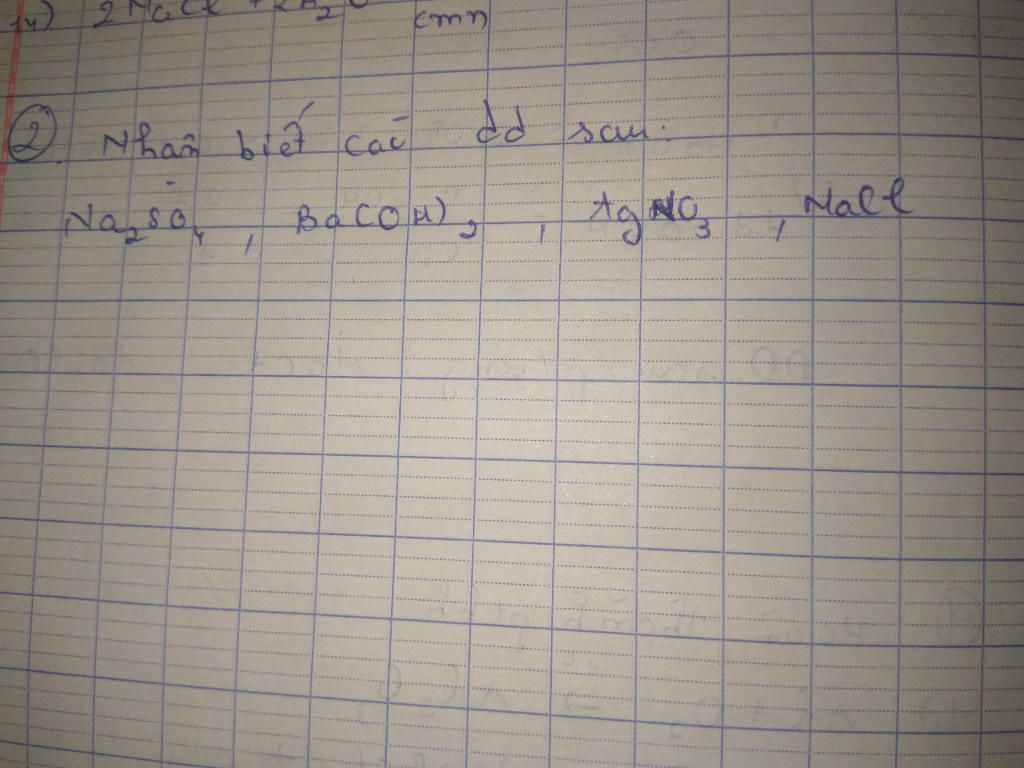 14) 2NaCl + 2H₂O cmn
② Nhận biết các dd sau.
Na₂SO₄, Ba(OH)₂, AgNO₃, NaCl